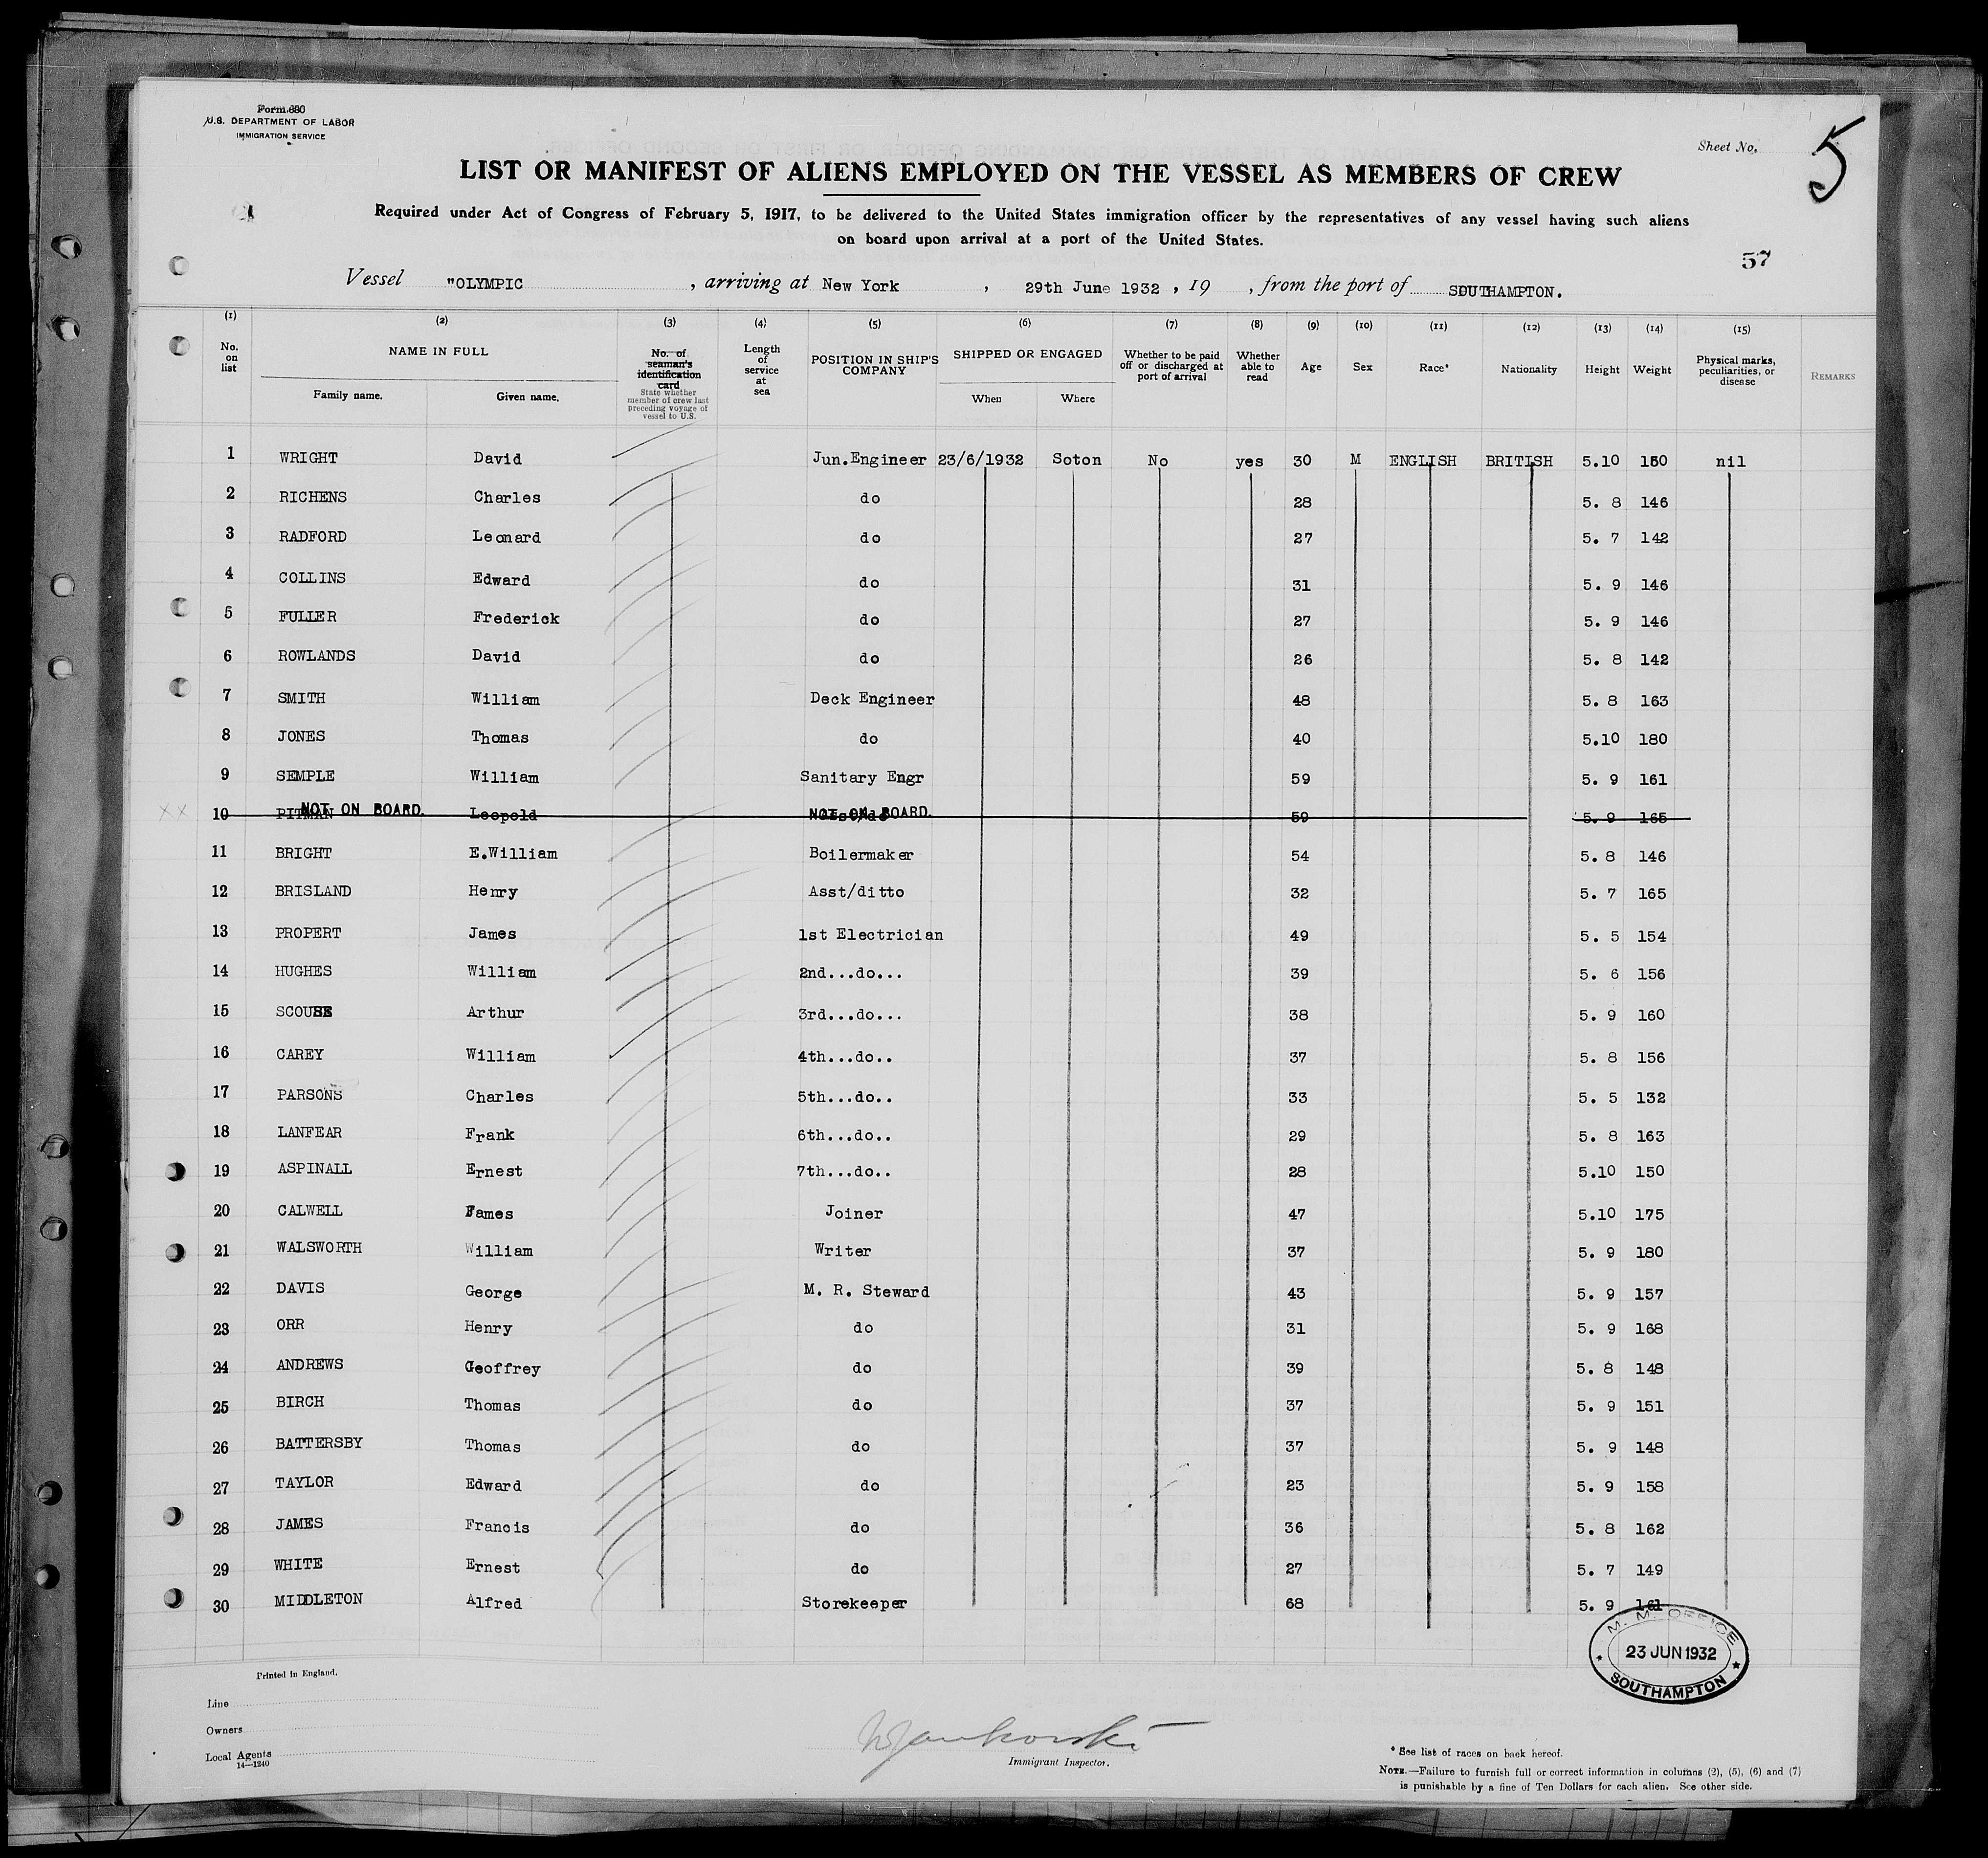 Form 680
U.S. DEPARTMENT OF LABOR
IMMIGRATION SERVICE
Sheet No. 5
LIST OR MANIFEST OF ALIENS EMPLOYED ON THE VESSEL AS MEMBERS OF CREW
Required under Act of Congress of February 5, 1917, to be delivered to the United States immigration officer by the representatives of any vessel having such aliens
on board upon arrival at a port of the United States.
57
Vessel "OLYMPIC , arriving at New York , 29th June 1932 , 19 , from the port of SOUTHAMPTON.
(1) (2) (3) (4) (5) (6) (7) (8) (9) (10) (11) (12) (13) (14) (15)
No. on list NAME IN FULL Family name. Given name. No. of seaman's identification card State whether member of crew last preceding voyage of vessel to U.S. Length of service at sea POSITION IN SHIP'S COMPANY SHIPPED OR ENGAGED When Where Whether to be paid off or discharged at port of arrival Whether able to read Age Sex Race* Nationality Height Weight Physical marks, peculiarities, or disease REMARKS
1 WRIGHT David Jun.Engineer 23/6/1932 Soton No yes 30 M ENGLISH BRITISH 5.10 150 nil
2 RICHENS Charles do 28 5. 8 146
3 RADFORD Leonard do 27 5. 7 142
4 COLLINS Edward do 31 5. 9 146
5 FULLER Frederick do 27 5. 9 146
6 ROWLANDS David do 26 5. 8 142
7 SMITH William Deck Engineer 48 5. 8 163
8 JONES Thomas do 40 5.10 180
9 SEMPLE William Sanitary Engr 59 5. 9 161
XX 10 PITMAN NOT ON BOARD. Leopold NOT ON BOARD. 59 5. 9 165
11 BRIGHT E.William Boilermaker 54 5. 8 146
12 BRISLAND Henry Asst/ditto 32 5. 7 165
13 PROPERT James 1st Electrician 49 5. 5 154
14 HUGHES William 2nd...do... 39 5. 6 156
15 Arthur 3rd...do... 38 5. 9 160
16 CAREY William 4th...do.. 37 5. 8 156
17 PARSONS Charles 5th...do.. 33 5. 5 132
18 LANFEAR Frank 6th...do.. 29 5. 8 163
19 ASPINALL Ernest 7th...do.. 28 5.10 150
20 CALWELL James Joiner 47 5.10 175
21 WALSWORTH William Writer 37 5. 9 180
22 DAVIS George M. R. Steward 43 5. 9 157
23 ORR Henry do 31 5. 9 168
24 ANDREWS Geoffrey do 39 5. 8 148
25 BIRCH Thomas do 37 5. 9 151
26 BATTERSBY Thomas do 37 5. 9 148
27 TAYLOR Edward do 23 5. 9 158
28 JAMES Francis do 36 5. 8 162
29 WHITE Ernest do 27 5. 7 149
30 MIDDLETON Alfred Storekeeper 68 5. 9 161
M. M. OFFICE
23 JUN 1932
SOUTHAMPTON
Printed in England.
Line
Owners
Local Agents
14—1240
Immigrant Inspector.
* See list of races on back hereof.
NOTE.—Failure to furnish full or correct information in columns (2), (5), (6) and (7)
is punishable by a fine of Ten Dollars for each alien. See other side.